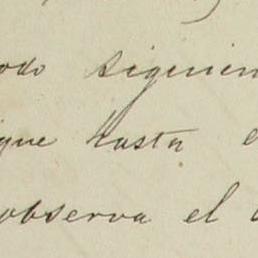 odo siguien
que hasta e
observa el